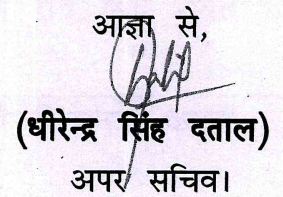 आज्ञा से,
(धीरेन्द्र सिंह दताल)
अपर सचिव।